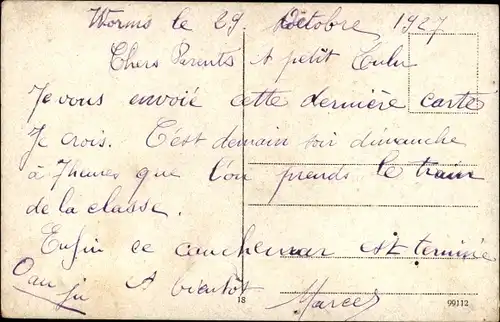 Worms le 29 Octobre 1927
Chers Parents et petit Lulu
Je vous envoié cette dernière carte
Je crois. C'est demain soir dimanche
à 7 heures que l'on prends le train
de la classe.
Enfin ce cauchemar est terminé
A bientot Marcel
18 99112